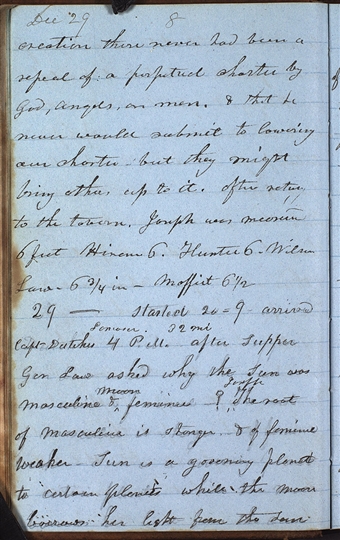 Dec 29 8
creation there never had been a
repeal of a perpetual charter by
God, angels, or men. & that he
never would submit to lowering
our charter but they might
bring others up to it. after return
to the tavern. Joseph was measured
6 feet Hiram 6. Hunter 6 - Wilson
Law - 6 3/4 in - Moffitt 6 1/2
29 — started 20 = 9 - arrived
32 mi
Capt Dutches 4 P.M. after supper
Gen Law asked why the Sun was
Moon Joseph
masculine & feminine ? the root
of masculine is stronger & of feminine
weaker - Sun is a governing planet
to certain planets while the moon
borrows her light from the Sun